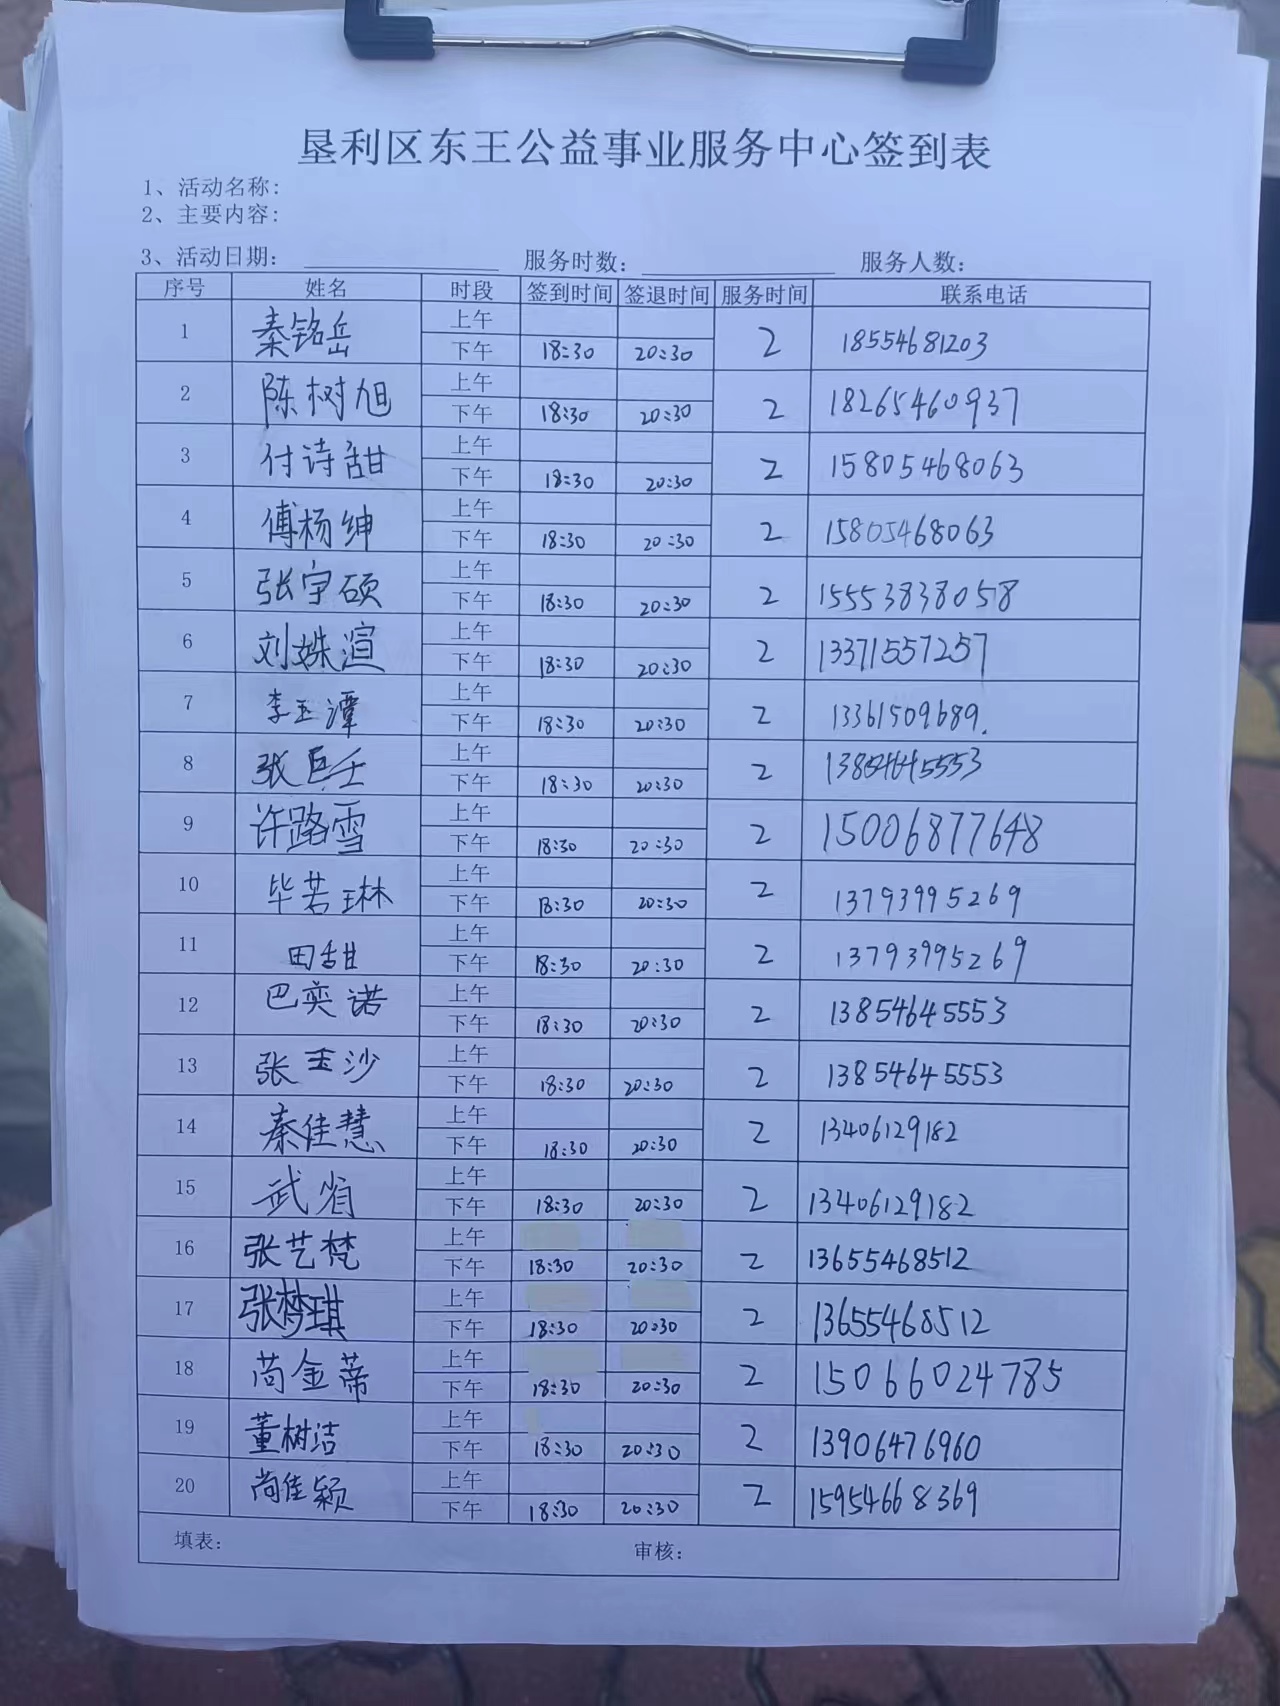 垦利区东王公益事业服务中心签到表
1、活动名称:
2、主要内容:
3、活动日期: 服务时数: 服务人数:
序号 姓名 时段 签到时间 签退时间 服务时间 联系电话
1 秦铭岳 上午 2 18554681203
下午 18:30 20:30
2 陈树旭 上午 2 18265460937
下午 18:30 20:30
3 付诗甜 上午 2 15805468063
下午 18:30 20:30
4 傅杨绅 上午 2 15805468063
下午 18:30 20:30
5 张宇硕 上午 2 15553838058
下午 18:30 20:30
6 刘姝渲 上午 2 13371557257
下午 18:30 20:30
7 李玉潭 上午 2 13361509689.
下午 18:30 20:30
8 张 上午 2 13854645553
下午 18:30 20:30
9 许路雪 上午 2 15006877648
下午 18:30 20:30
10 毕若琳 上午 2 13793995269
下午 18:30 20:30
11 田甜 上午 2 13793995269
下午 18:30 20:30
12 巴奕诺 上午 2 13854645553
下午 18:30 20:30
13 张玉沙 上午 2 13854645553
下午 18:30 20:30
14 秦佳慧 上午 2 13406129182
下午 18:30 20:30
15 武省 上午 2 13406129182
下午 18:30 20:30
16 张艺梵 上午 2 13655468512
下午 18:30 20:30
17 张梦琪 上午 2 13655468512
下午 18:30 20:30
18 尚金蒂 上午 2 15066024785
下午 18:30 20:30
19 董树洁 上午 2 13906476960
下午 18:30 20:30
20 尚佳颖 上午 2 15954668369
下午 18:30 20:30
填表: 审核: